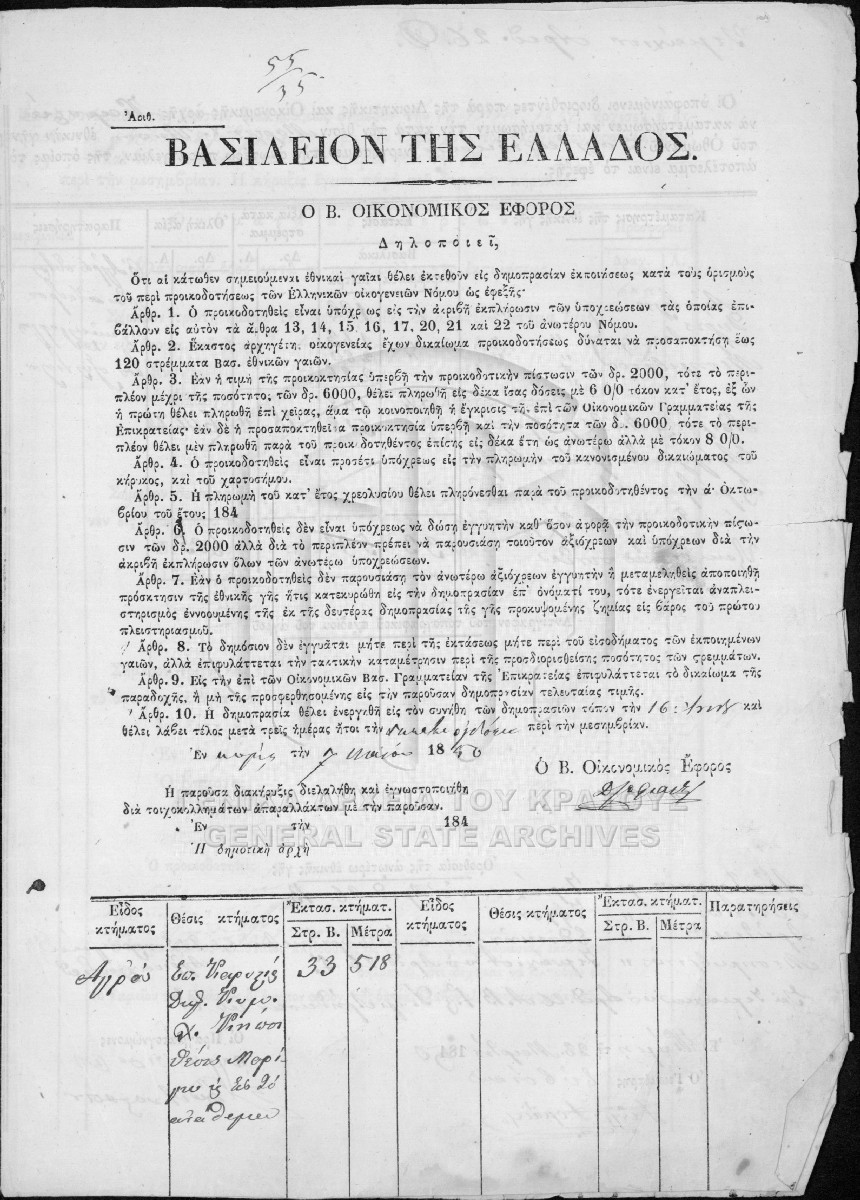 55
/35
Ἀριθ.
ΒΑΣΙΛΕΙΟΝ ΤΗΣ ΕΛΛΑΔΟΣ.
Ο Β. ΟΙΚΟΝΟΜΙΚΟΣ ΕΦΟΡΟΣ
Δηλοποιεῖ,
Ὅτι αἱ κάτωθεν σημειούμεναι ἐθνικαὶ γαῖαι θέλει ἐκτεθοῦν εἰς δημοπρασίαν ἐκποιήσεως κατὰ τοὺς ὁρισμοὺς
τοῦ περὶ προικοδοτήσεως τῶν Ἑλληνικῶν οἰκογενειῶν Νόμου ὡς ἐφεξῆς·
Ἄρθρ. 1. Ὁ προικοδοτηθεὶς εἶναι ὑπόχρ ως εἰς τὴν ἀκριβῆ ἐκπλήρωσιν τῶν ὑποχρεώσεων τὰς ὁποίας ἐπι-
βάλλουν εἰς αὐτὸν τὰ ἄρθρα 13, 14, 15, 16, 17, 20, 21 καὶ 22 τοῦ ἀνωτέρου Νόμου.
Ἄρθρ. 2. Ἕκαστος ἀρχηγέτης οἰκογενείας ἔχων δικαίωμα προικοδοτήσεως δύναται νὰ προσαποκτήσῃ ἕως
120 στρέμματα Βασ. ἐθνικῶν γαιῶν.
Ἄρθρ. 3. Ἐὰν ἡ τιμὴ τῆς προικοκτησίας ὑπερβῇ τὴν προικοδοτικὴν πίστωσιν τῶν δρ. 2000, τότε τὸ περι-
πλέον μέχρι τῆς ποσότητος τῶν δρ. 6000, θέλει πληρωθῆ εἰς δέκα ἴσας δόσεις μὲ 6 0/0 τόκον κατ᾽ ἔτος, ἐξ ὧν
ἡ πρώτη θέλει πληρωθῆ ἐπὶ χεῖρας, ἅμα τῷ κοινοποιηθῇ ἡ ἔγκρισις τῆς ἐπὶ τῶν Οἰκονομικῶν Γραμματείας τῆς
Ἐπικρατείας· ἐὰν δὲ ἡ προσαποκτηθεῖσα προικοκτησία ὑπερβῇ καὶ τὴν ποσότητα τῶν δρ. 6000, τότε τὸ περι-
πλέον θέλει μὲν πληρωθῆ παρὰ τοῦ προικοδοτηθέντος ἐπίσης εἰς δέκα ἔτη ὡς ἀνωτέρω ἀλλὰ μὲ τόκον 8 0/0.
Ἄρθρ. 4. Ὁ προικοδοτηθεὶς εἶναι προσέτι ὑπόχρεως εἰς τὴν πληρωμὴν τοῦ κανονισμένου δικαιώματος τοῦ
κήρυκος, καὶ τοῦ χαρτοσήμου.
Ἄρθρ. 5. Ἡ πληρωμὴ τοῦ κατ᾽ ἔτος χρεολυσίου θέλει πληρόνεσθαι παρὰ τοῦ προικοδοτηθέντος τὴν ά Ὀκτω-
βρίου τοῦ ἔτους 184
Ἄρθρ. 6. Ὁ προικοδοτηθεὶς δὲν εἶναι ὑπόχρεως νὰ δώσῃ ἐγγυητὴν καθ᾽ ὅσον ἀφορᾷ τὴν προικοδοτικὴν πίστω-
σιν τῶν δρ. 2000 ἀλλὰ διὰ τὸ περιπλέον πρέπει νὰ παρουσιάσῃ τοιοῦτον ἀξιόχρεων καὶ ὑπόχρεων διὰ τὴν
ἀκριβῆ ἐκπλήρωσιν ὅλων τῶν ἀνωτέρω ὑποχρεώσεων.
Ἄρθρ. 7. Ἐὰν ὁ προικοδοτηθεὶς δὲν παρουσιάσῃ τὸν ἀνωτέρω ἀξιόχρεων ἐγγυητὴν ἢ μεταμεληθεὶς ἀποποιηθῇ
πρόσκτησιν τῆς ἐθνικῆς γῆς ἥτις κατεκυρώθη εἰς τὴν δημοπρασίαν ἐπ᾽ ὀνόματί του, τότε ἐνεργεῖται ἀναπλει-
στηρισμὸς ἐννοουμένης τῆς ἐκ τῆς δευτέρας δημοπρασίας τῆς γῆς προκυψομένης ζημίας εἰς βάρος τοῦ πρώτου
πλειστηριασμοῦ.
Ἄρθρ. 8. Τὸ δημόσιον δὲν ἐγγυᾶται μήτε περὶ τῆς ἐκτάσεως μήτε περὶ τοῦ εἰσοδήματος τῶν ἐκποιημένων
γαιῶν, ἀλλὰ ἐπιφυλάττεται τὴν τακτικὴν καταμέτρησιν περὶ τῆς προσδιορισθείσης ποσότητος τῶν στρεμμάτων.
Ἄρθρ. 9. Εἰς τὴν ἐπὶ τῶν Οἰκονομικῶν Βασ. Γραμματείαν τῆς Ἐπικρατείας ἐπιφυλάττεται τὸ δικαίωμα τῆς
παραδοχῆς, ἢ μὴ τῆς προσφερθησομένης εἰς τὴν παροῦσαν δημοπρασίαν τελευταίας τιμῆς.
Ἄρθρ. 10. Ἡ δημοπρασία θέλει ἐνεργηθῆ εἰς τὸν συνήθη τῶν δημοπρασιῶν τόπον τὴν 16 καὶ
θέλει λάβει τέλος μετὰ τρεῖς ἡμέρας ἤτοι τὴν περὶ τὴν μεσημβρίαν.
Ἐν τὴν 7 18 50
Ὁ Β. Οἰκονομικὸς Ἔφορος
Ἡ παροῦσα διακήρυξις διελαλήθη καὶ ἐγνωστοποιήθη
διὰ τοιχοκολλημάτων ἀπαραλλάκτων μὲ τὴν παροῦσαν.
Ἐν τὴν 184
Ἡ δημοτικὴ ἀρχὴ
ΓΕΝΙΚΑ ΑΡΧΕΙΑ ΤΟΥ ΚΡΑΤΟΥΣ
GENERAL STATE ARCHIVES
Εἶδος κτήματος Θέσις κτήματος Ἔκτασ. κτήματ. Εἶδος κτήματος Θέσις κτήματος Ἔκτασ. κτήματ. Παρατηρήσεις
Στρ. Β. Μέτρα Στρ. Β. Μέτρα
Ἀγρός 33 518